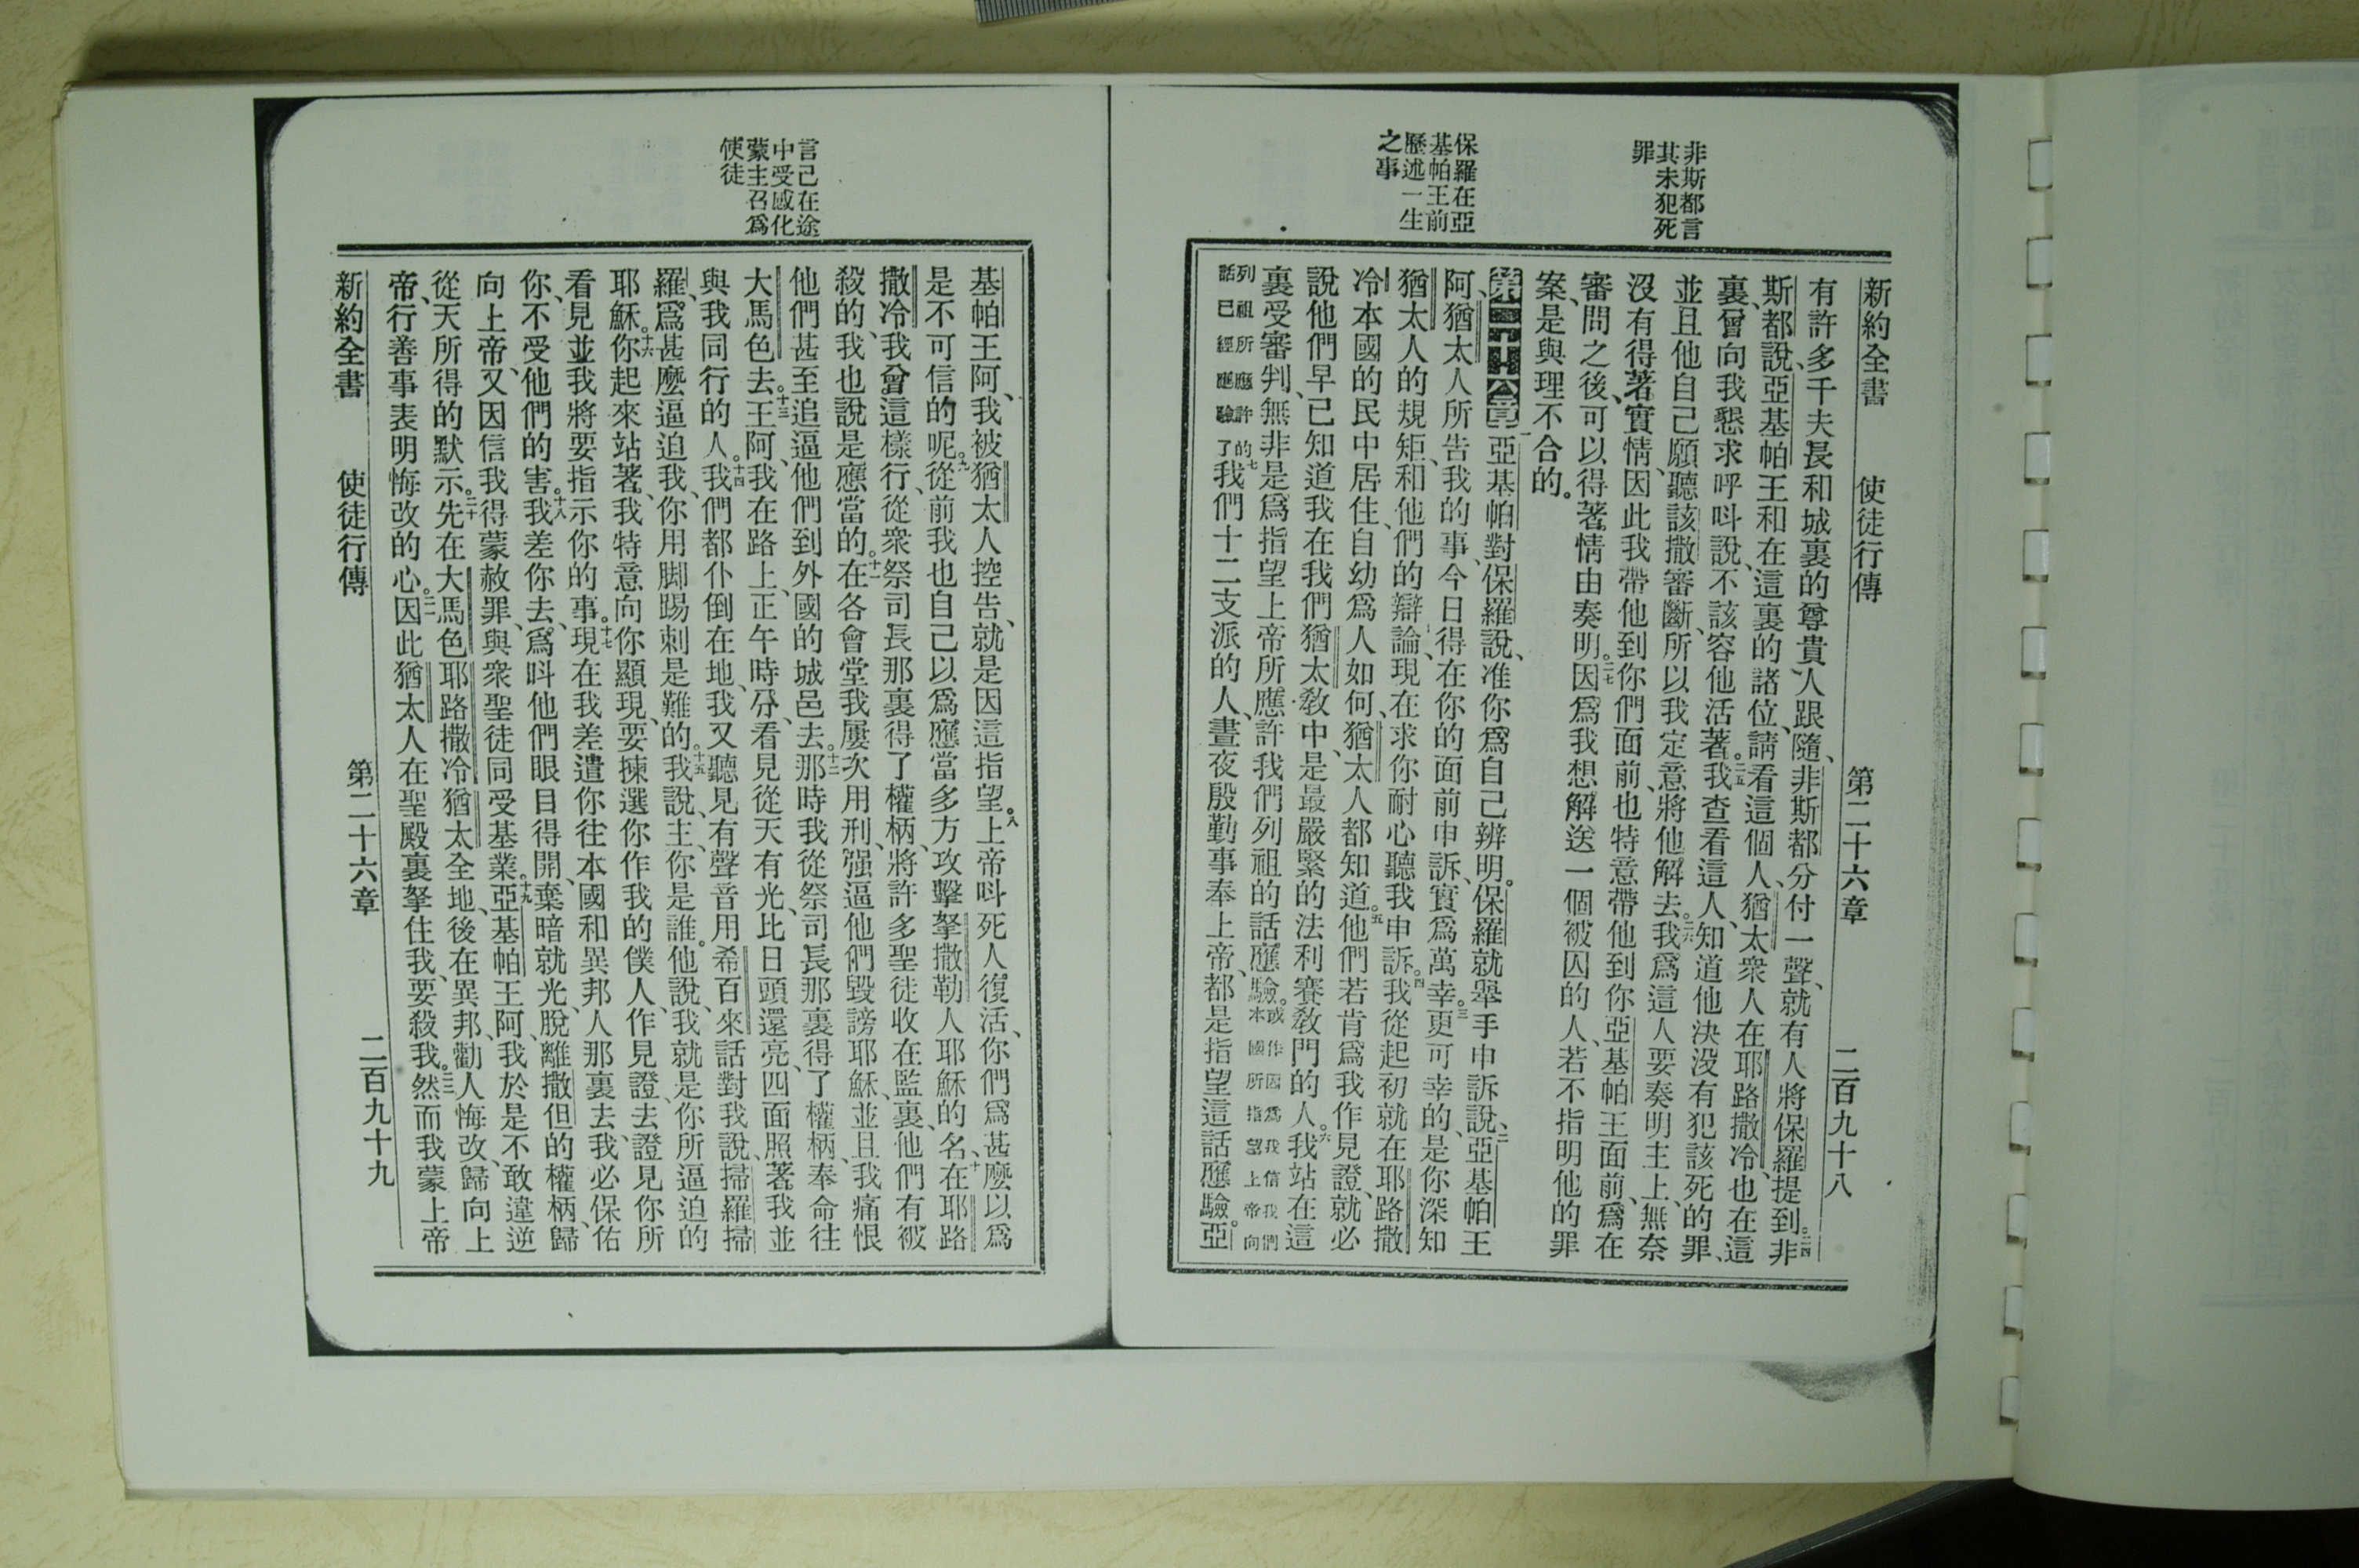 非斯都言
其未犯死
罪
保羅在亞
基帕王前
歷述一生
之事
新約全書 使徒行傳 第二十六章 二百九十八
有許多千夫長和城裏的尊貴人跟隨、非斯都分付一聲、就有人將保羅提到。二四非
斯都說、亞基帕王和在這裏的諸位、請看這個人、猶太衆人在耶路撒冷、也在這
裏、曾向我懇求呼呌說、不該容他活著。二五我查看這人、知道他決沒有犯該死的罪、
並且他自己願聽該撒審斷、所以我定意將他解去。二六我爲這人要奏明主上、無奈
沒有得著實情、因此我帶他到你們面前、也特意帶他到你亞基帕王面前、爲在
審問之後、可以得著情由奏明。二七因爲我想解送一個被囚的人、若不指明他的罪
案、是與理不合的。
第二十六章 一亞基帕對保羅說、准你爲自己辨明。保羅就舉手申訴說、二亞基帕王
阿、猶太人所告我的事、今日得在你的面前申訴、實爲萬幸。三更可幸的、是你深知
猶太人的規矩、和他們的辯論、現在求你耐心聽我申訴。四我從起初就在耶路撒
冷本國的民中居住、自幼爲人如何、猶太人都知道。五他們若肯爲我作見證、就必
說他們早已知道我在我們猶太敎中、是最嚴緊的法利賽敎門的人。六我站在這
裏受審判、無非是爲指望上帝所應許我們列祖的話應驗。或作因爲我信我們本國所指望上帝向
列祖所應許的話已經應驗了七我們十二支派的人、晝夜殷勤事奉上帝、都是指望這話應驗。亞
言己在途
中受感化
蒙主召爲
使徒
基帕王阿、我被猶太人控告、就是因這指望。八上帝呌死人復活、你們爲甚麼以爲
是不可信的呢。九從前我也自己以爲應當多方攻擊拏撒勒人耶穌的名、十在耶路
撒冷我曾這樣行、從衆祭司長那裏得了權柄、將許多聖徒收在監裏、他們有被
殺的、我也說是應當的。十一在各會堂我屢次用刑、强逼他們毀謗耶穌、並且我痛恨
他們甚至追逼他們到外國的城邑去。十二那時我從祭司長那裏得了權柄、奉命往
大馬色去。十三王阿、我在路上、正午時分、看見從天有光、比日頭還亮、四面照著我並
與我同行的人。十四我們都仆倒在地、我又聽見有聲音用希百來話對我說、掃羅掃
羅、爲甚麼逼迫我、你用脚踢刺是難的。十五我說、主、你是誰。他說、我就是你所逼迫的
耶穌。十六你起來站著、我特意向你顯現、要揀選你作我的僕人、作見證、去證見你所
看見並我將要指示你的事。十七現在我差遣你往本國和異邦人那裏去、我必保佑
你、不受他們的害。十八我差你去、爲呌他們眼目得開、棄暗就光、脫離撒但的權柄、歸
向上帝、又因信我得蒙赦罪、與衆聖徒同受基業。十九亞基帕王阿、我於是不敢違逆
從天所得的默示。二十先在大馬色耶路撒冷猶太全地、後在異邦、勸人悔改、歸向上
帝、行善事表明悔改的心。二一因此猶太人在聖殿裏拏住我、要殺我。二二然而我蒙上帝
新約全書 使徒行傳 第二十六章 二百九十九